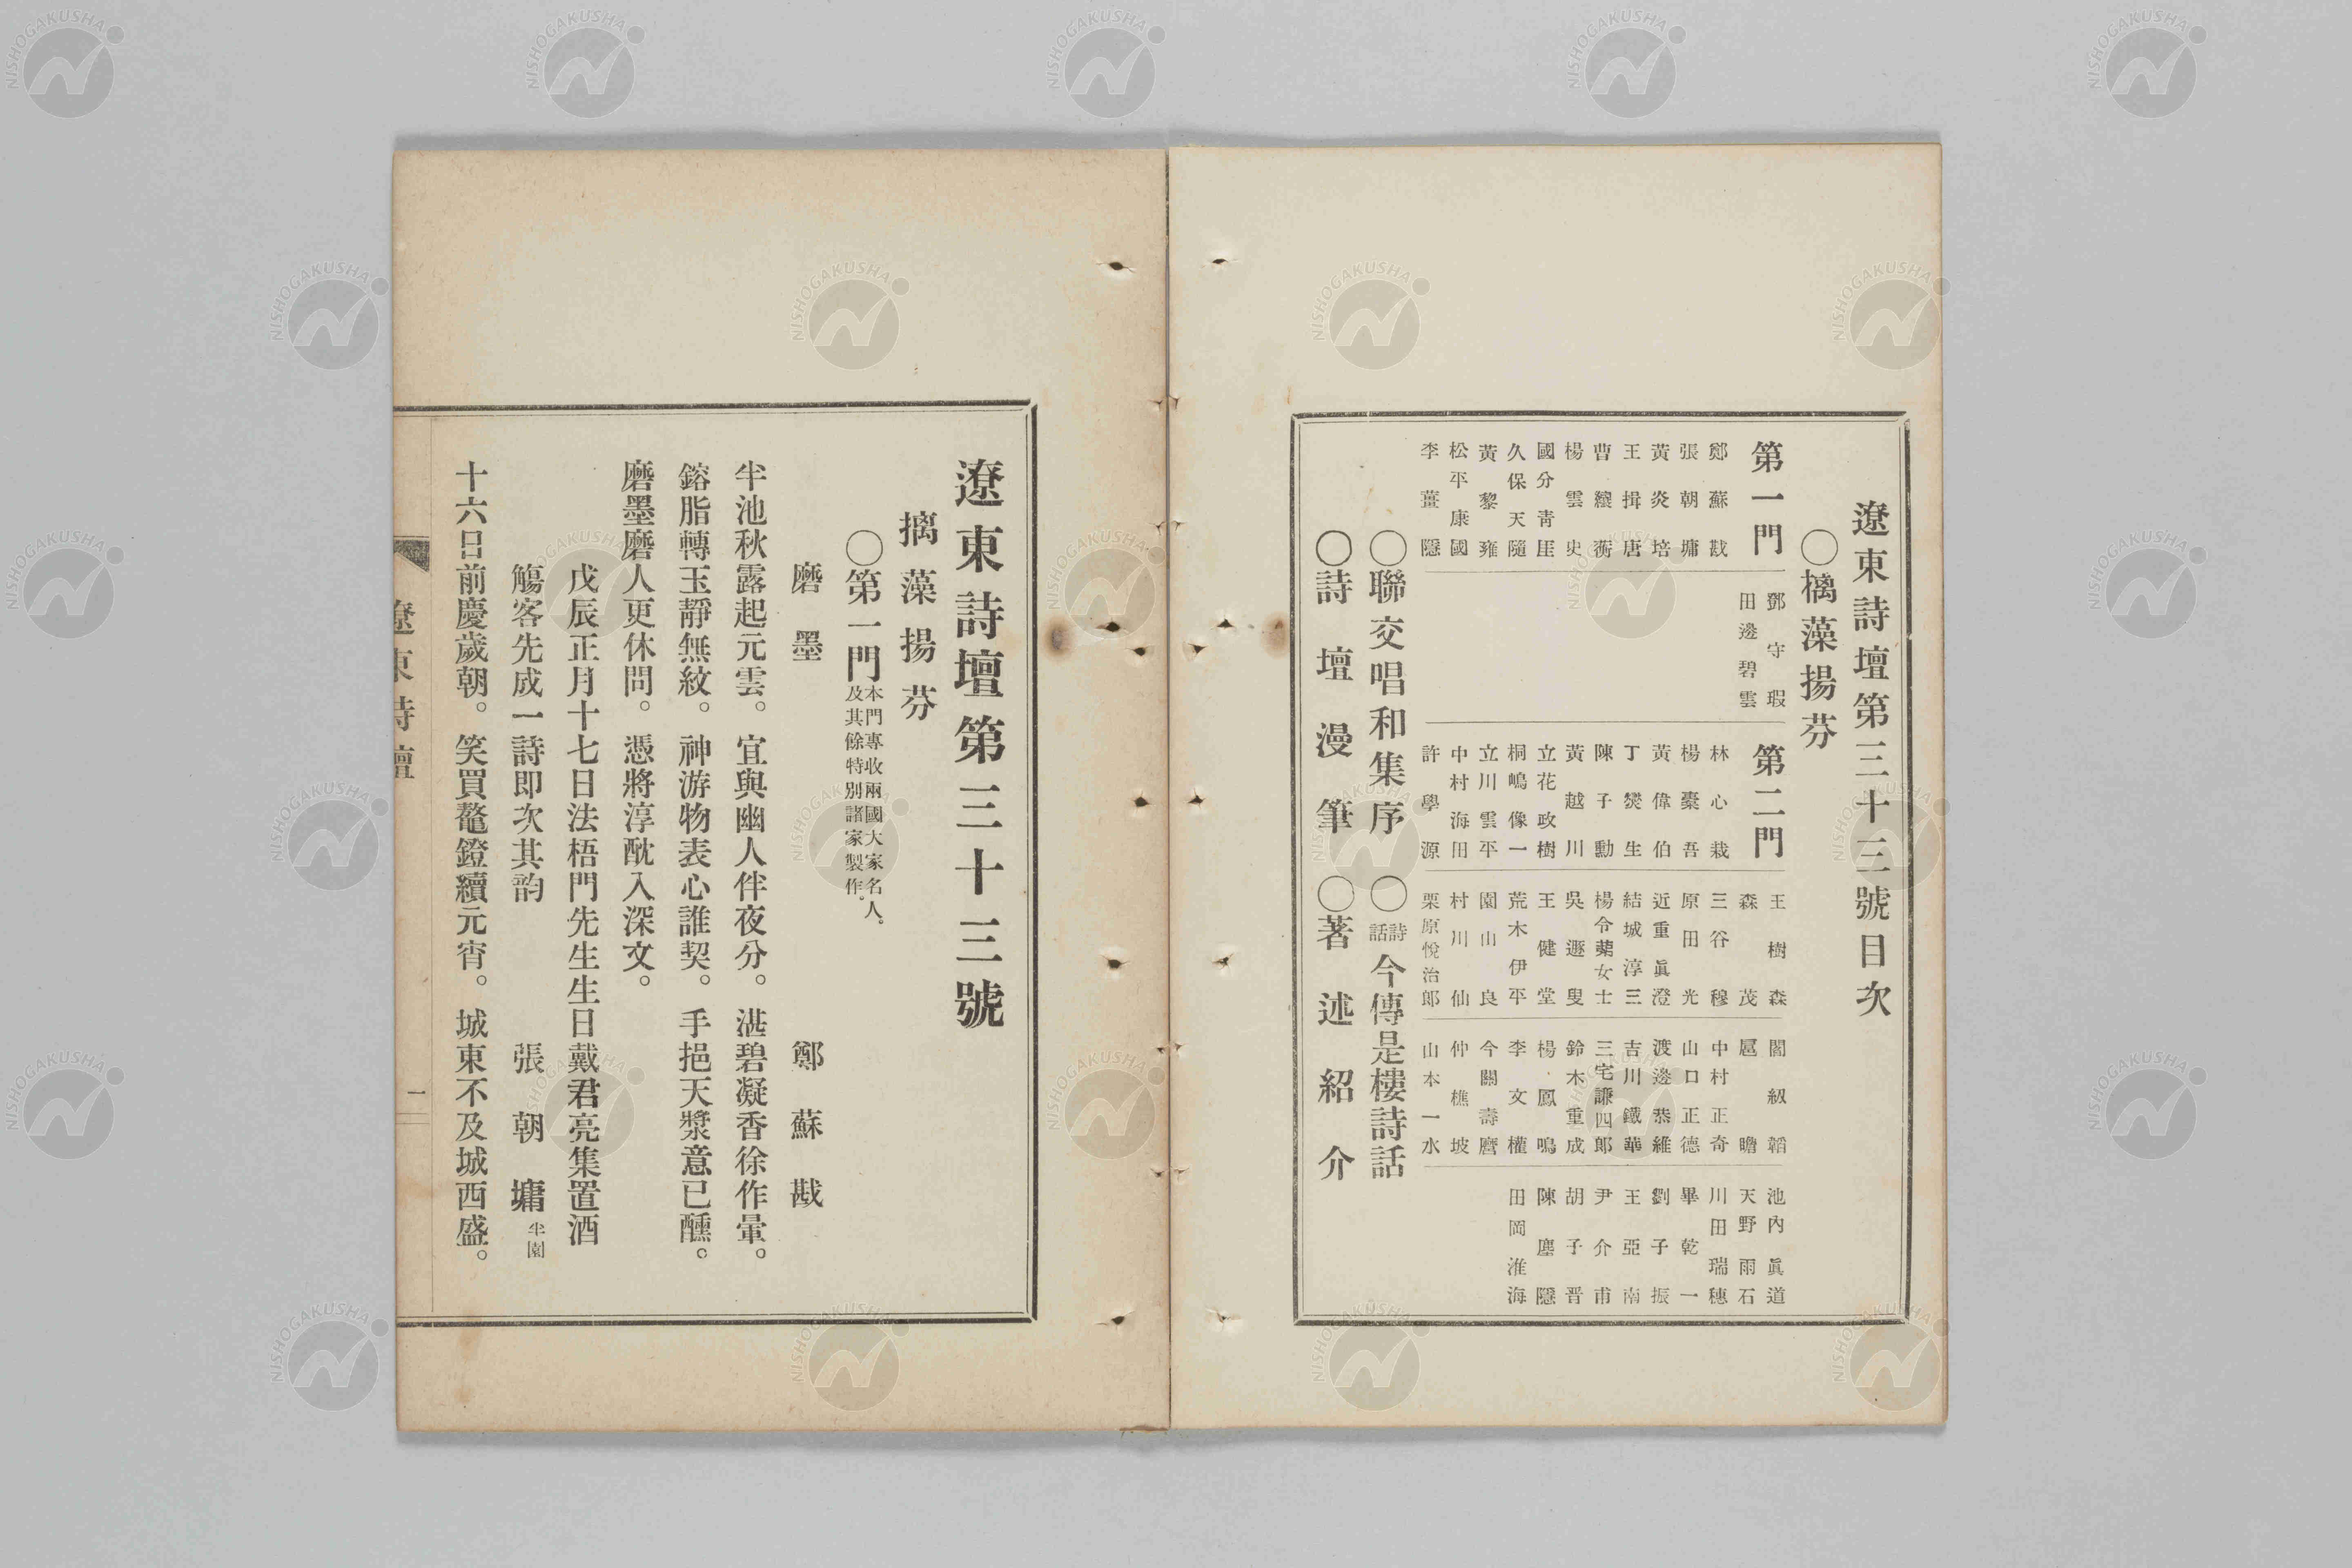 遼東詩壇第三十三號目次
〇樆藻揚芬
第一門
鄭蘇戡
張朝墉
黃炎培
王揖唐
曹纕蘅
楊雲史
國分青厓
久保天隨
黃黎雍
松平康國
李薑隱
鄧守瑕
田邊碧雲
第二門
林心栽
楊橐吾
黃偉伯
丁爕生
陳子勳
黃越川
立花政樹
桐嶋像一
立川雲平
中村海田
許學源
王樹森
森茂
三谷穆
原田光
近重眞澄
結城淳三
楊令茀女士
吳遯叟
王健堂
荒木伊平
園山良
村川仙
栗原悅治郎
閻紉韜
扈瞻
中村正奇
山口正德
渡邊恭維
吉川鐵華
三宅謙四郎
鈴木重成
楊鳳鳴
李文權
今關壽麿
仲樵坡
山本一水
池內眞道
天野雨石
川田瑞穗
畢乾一
劉子振
王亞南
尹介甫
胡子晋
陳塵隱
田岡淮海
〇聯交唱和集序 〇詩話 今傳是樓詩話
〇詩壇漫筆 〇著述紹介
遼東詩壇第三十三號
摛藻揚芬
〇第一門 本門專收兩國大家名人。及其餘特別諸家製作。
磨墨 鄭蘇戡
半池秋露起元雲。宜與幽人伴夜分。湛碧凝香徐作暈。
鎔脂轉玉靜無紋。神游物表心誰契。手挹天漿意已醺。
磨墨磨人更休問。憑將淳酖入深文。
戊辰正月十七日法梧門先生生日戴君亮集置酒
觴客先成一詩即次其韵 張朝墉 半園
十六日前慶歲朝。笑買鼇鐙續元宵。城東不及城西盛。
遼東詩壇
一
NISHOGAKUSHA